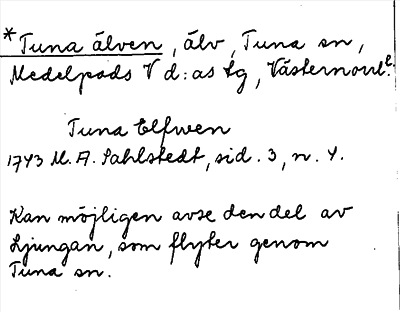 *Tuna älven, älv, Tuna sn,
Medelpads V d:as tg, Västernorrl.
Tuna Elfwen
1743 M. A. Sahlstedt, sid. 3, n. 4.
Kan möjligen avse den del av
Ljungan, som flyter genom
Tuna sn.